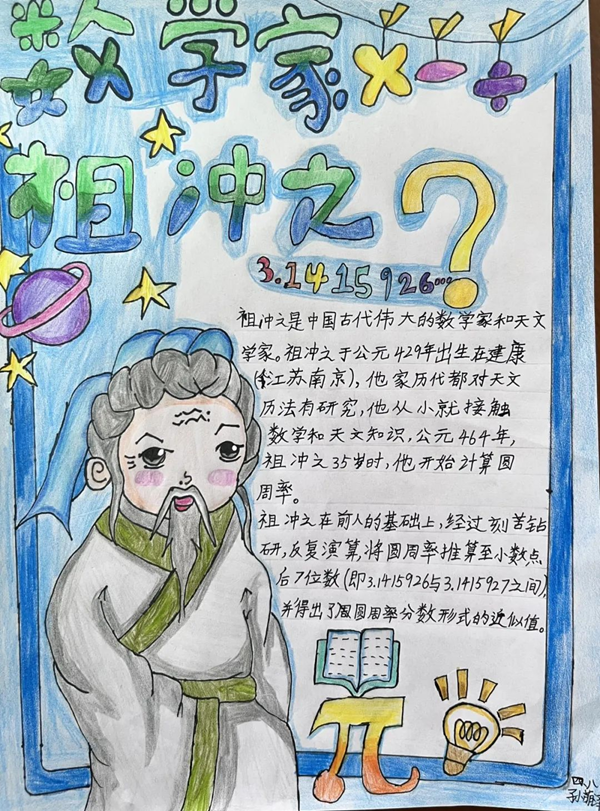 数学家
祖冲之
3.1415926…
祖冲之是中国古代伟大的数学家和天文
学家。祖冲之于公元429年出生在建康
(今江苏南京),他家历代都对天文
历法有研究,他从小就接触
数学和天文知识,公元464年,
祖冲之35岁时,他开始计算圆
周率。
祖冲之在前人的基础上,经过刻苦钻
研,反复演算,将圆周率推算至小数点
后7位数(即3.1415926与3.1415927之间),
并得出了圆周率分数形式的近似值。
π
四八
孙